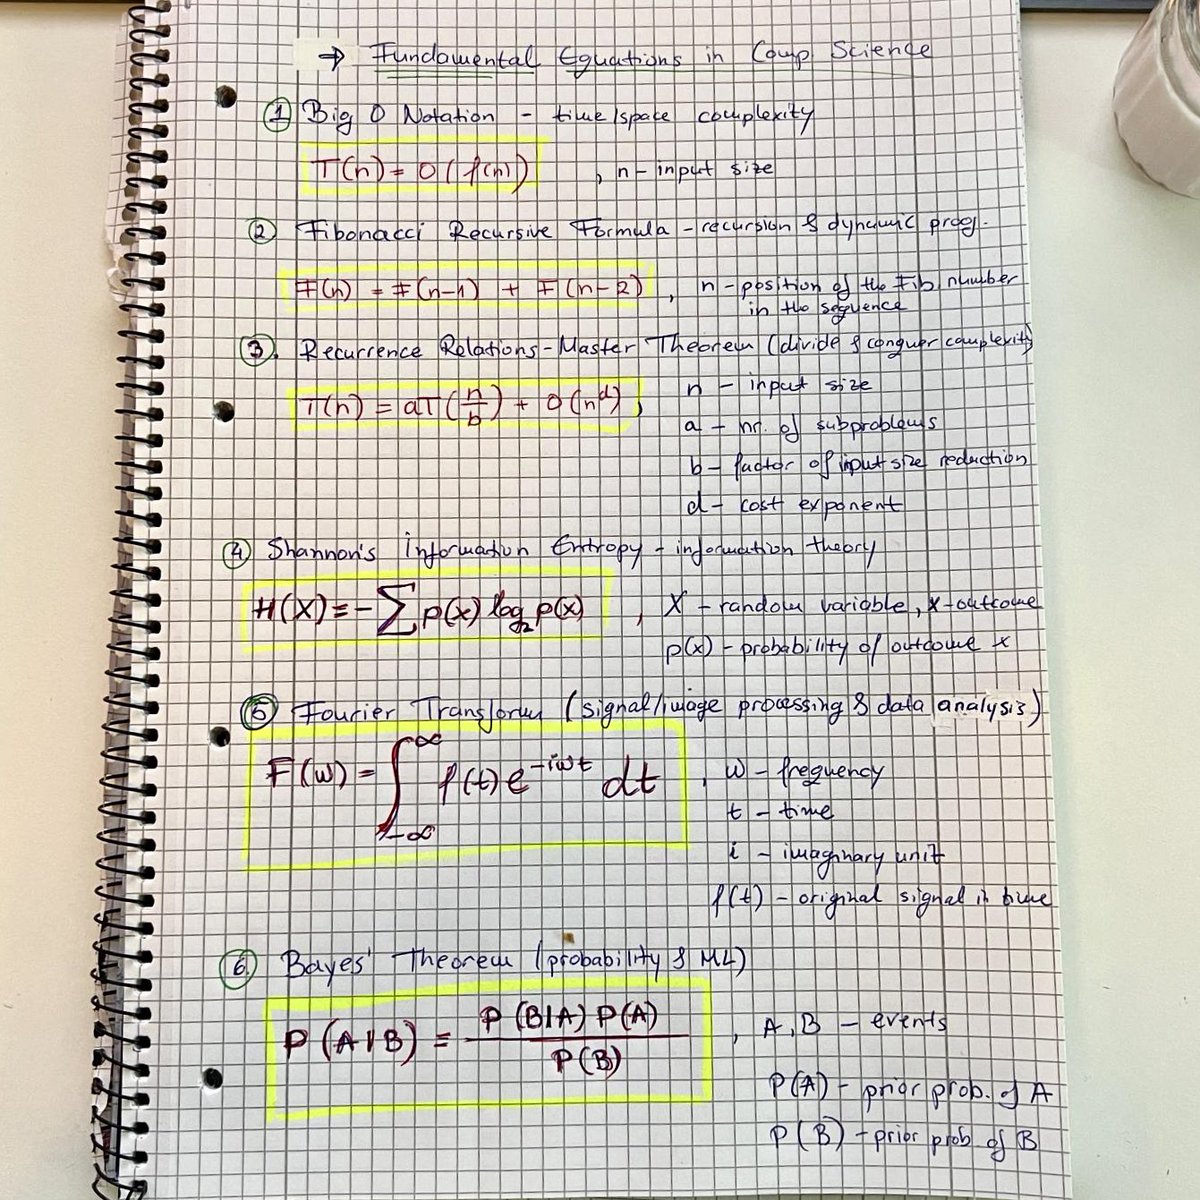 → Fundamental Equations in Comp. Science
① Big O Notation - time/space complexity
T(n) = O(f(n)) , n - input size
② Fibonacci Recursive Formula - recursion & dynamic prog.
F(n) = F(n-1) + F(n-2) , n - position of the Fib. number
in the sequence
③. Recurrence Relations - Master Theorem (divide & conquer complexity)
T(n) = aT(n/b) + O(n^d) , n - input size
a - nr. of subproblems
b - factor of input size reduction
d - cost exponent
④ Shannon's Information Entropy - information theory
H(X) = - ∑ p(x) log₂ p(x) , X - random variable, x - outcome
p(x) - probability of outcome x
⑤ Fourier Transform (signal/image processing & data analysis)
F(w) = ∫_{-∞}^{∞} f(t) e^{-iwt} dt , w - frequency
t - time
i - imaginary unit
f(t) - original signal in time
⑥ Bayes' Theorem (probability & ML)
P(A|B) = P(B|A) P(A) / P(B) , A, B - events
P(A) - prior prob. of A
P(B) - prior prob of B